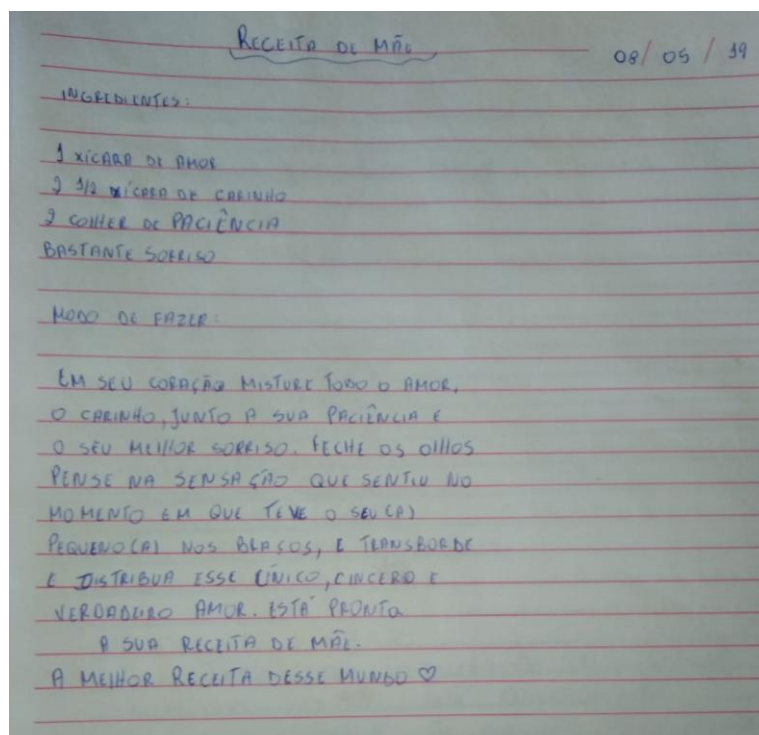 RECEITA DE MÃE
08/05/19
INGREDIENTES:
1 XÍCARA DE AMOR
2 1/2 XÍCARA DE CARINHO
2 COLHER DE PACIÊNCIA
BASTANTE SORRISO
MODO DE FAZER:
EM SEU CORAÇÃO MISTURE TODO O AMOR,
O CARINHO, JUNTO A SUA PACIÊNCIA E
O SEU MELHOR SORRISO. FECHE OS OLHOS
PENSE NA SENSAÇÃO QUE SENTIU NO
MOMENTO EM QUE TEVE O SEU(A)
PEQUENO(A) NOS BRAÇOS, E TRANSBORDE
E DISTRIBUA ESSE ÚNICO, CINCERO E
VERDADEIRO AMOR. ESTÁ PRONTA
A SUA RECEITA DE MÃE.
A MELHOR RECEITA DESSE MUNDO ♡